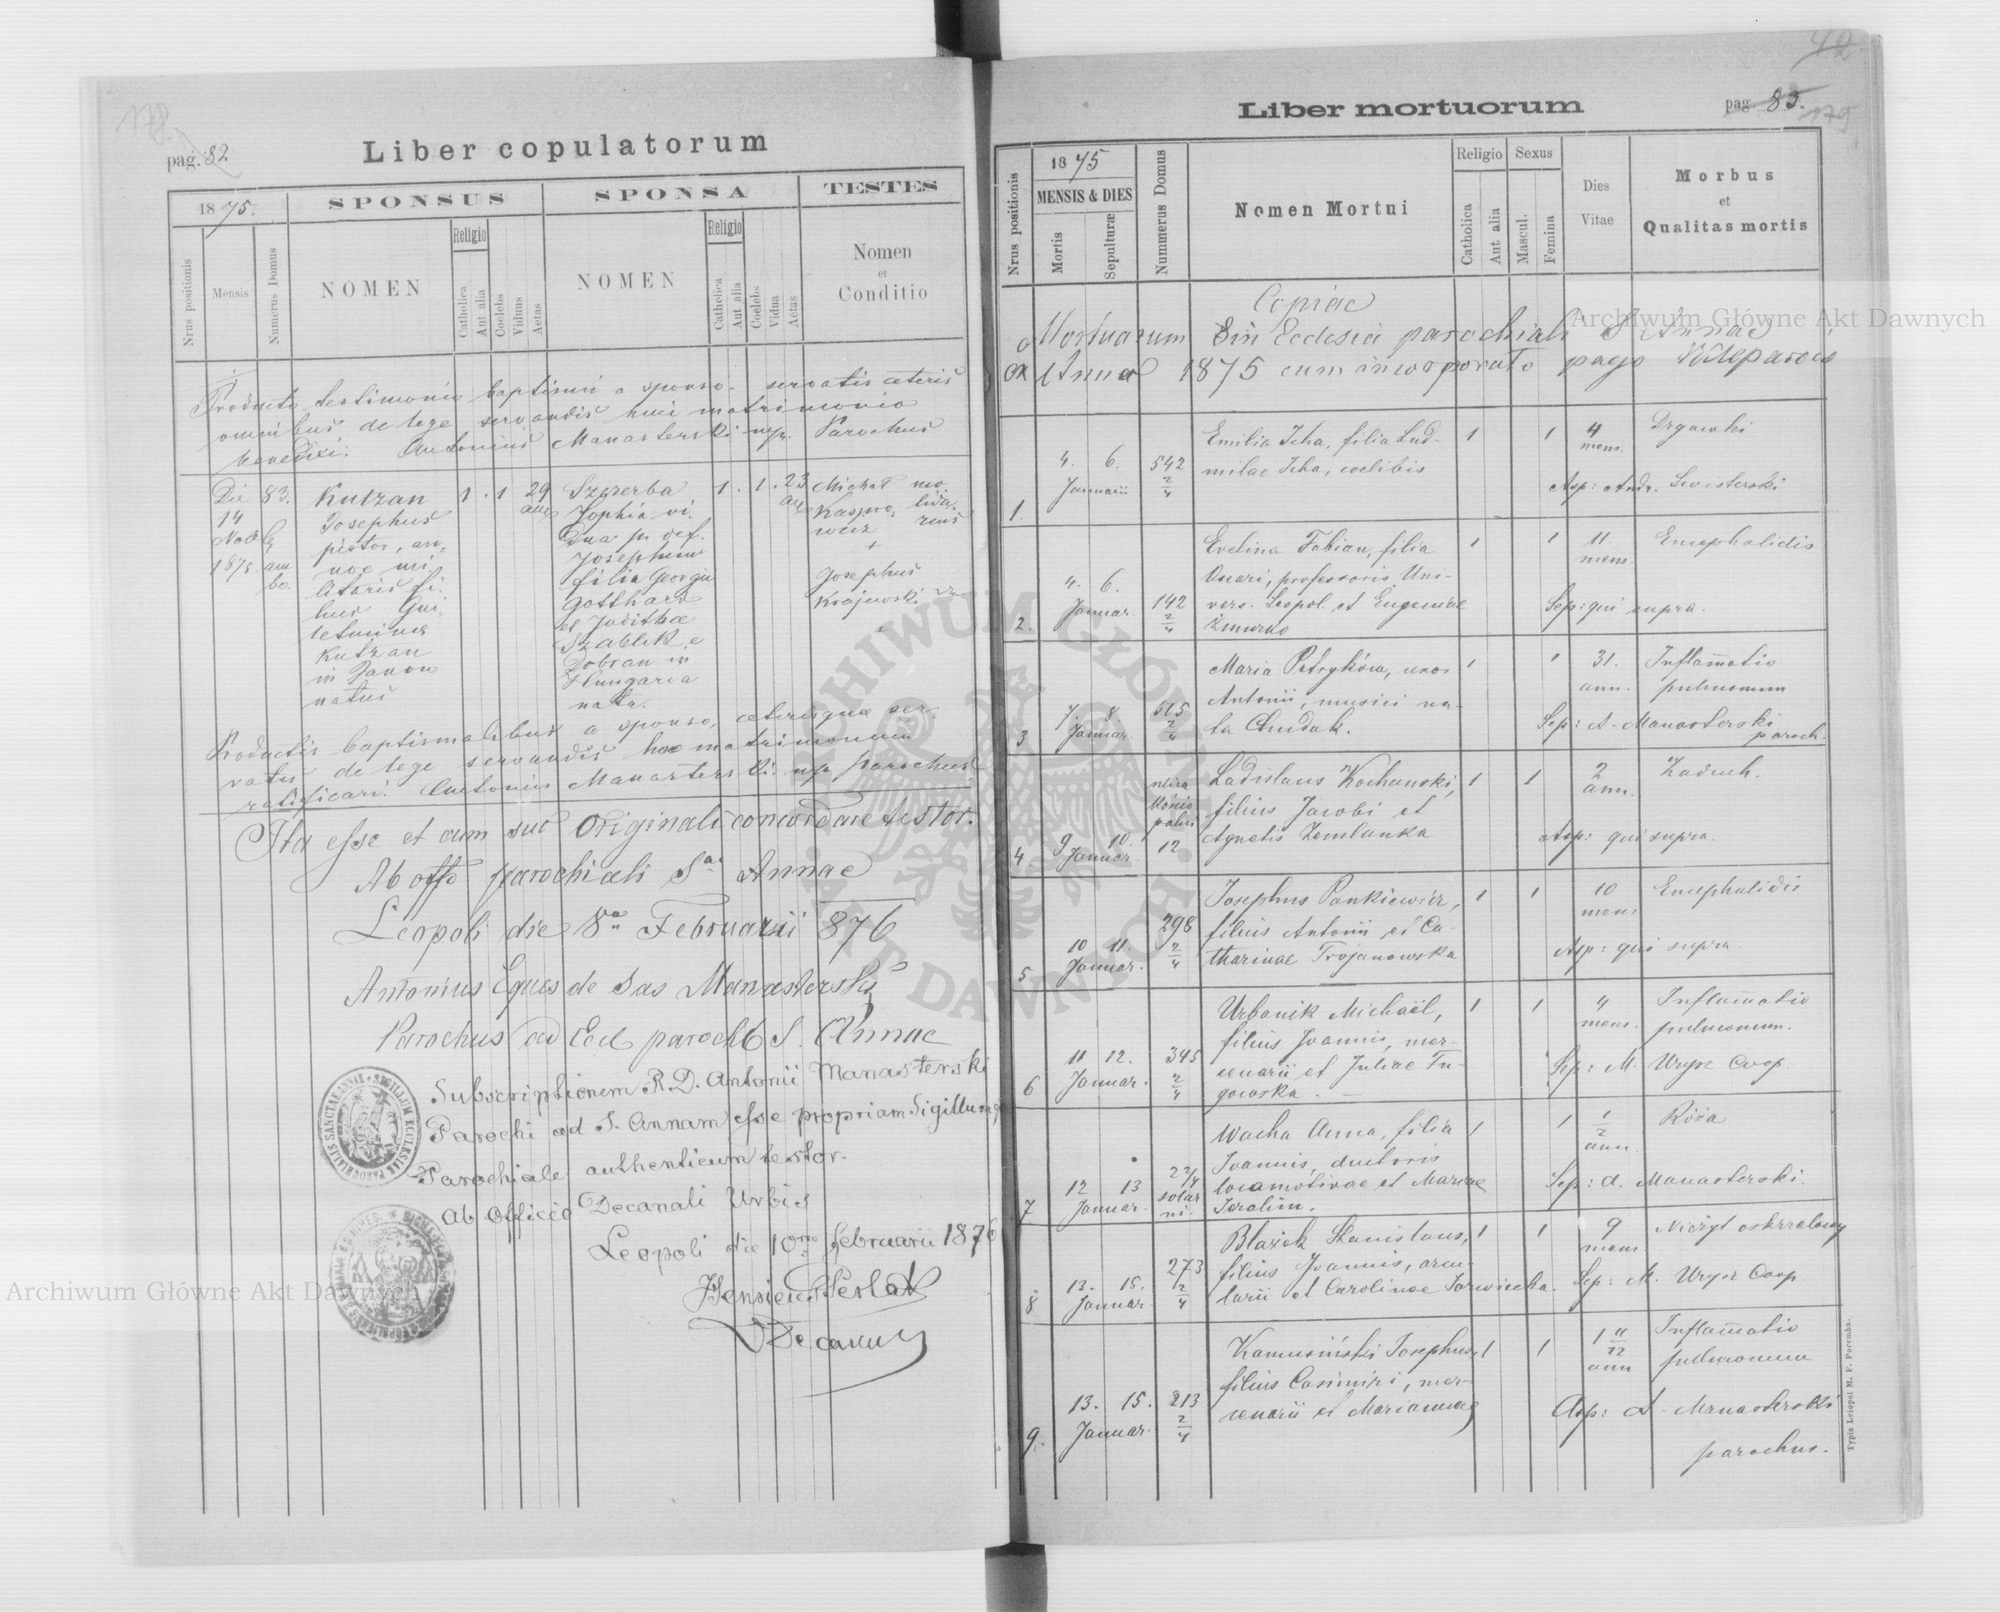 178.
pag. 82
Liber copulatorum
1875.
SPONSUS
SPONSA
TESTES
Nrus positionis
Mensis
Numerus Domus
NOMEN
Religio
Catholica
Aut alia
Coelebs
Viduus
Aetas
NOMEN
Religio
Catholica
Aut alia
Coelebs
Vidua
Aetas
Nomen
et
Conditio
Producto testimonio baptismi a sponso servatis ceteris
omnibus de lege servandis huic matrimonio
benedixi. Antonius Manasterski mp. Parochus
Die 83. Kutzan 1 . 1 29 Szczerba 1 . 1 . 23 Michał mo-
14 Josephus ann Sophia vi- ann Kaspro-
pistor, an- dua p. def. wicz
1875. am noe mi- Josephum +
bo. litaris fi- filia Georgii Josephus
lius Gui- Gotthard Krajewski
lelmi et Judithae +
Kutzan Szablik e
in Janow Dobran in
natus Hungaria
nata.
Productis baptismalibus a sponso, ceterisque ser-
vatis de lege servandis hoc matrimonium
ratificavi. Antonius Manasterski mp parochus
Ita esse et cum suo originali concordare testor.
Ab offo parochiali Sae Annae
Leopoli die 8va Februarii 876
Antonius Eques de Sas Manasterski
Parochus ad Eccl parochl S. Annae
Subscriptionem R. D. Antonii Manasterski
Parochi ad S. Annam esse propriam Sigillumq
Parochiale authenticum testor.
Ab Officio Decanali Urbis
Leopoli die 10ma februarii 1876
Decanus
42
Liber mortuorum
pag. 83.
179
Nrus positionis
1875
MENSIS & DIES
Mortis
Sepulturæ
Nummerus Domus
Nomen Mortui
Religio
Catholica
Aut alia
Sexus
Mascul.
Femina
Dies
Vitae
Morbus
et
Qualitas mortis
Copiae
Mortuorum in Ecclesia parochiali S. Annae
ex Anno 1875 cum incorporato pago Kleparow
Emilia Icha, filia Lud- 1 1 4 Drgawki
4. 6. 542 milae Icha, coelibis mens.
1. Januarii 2/4 Asp: Andr. Swisterski
Evelina Fabian, filia 1 1 11. Encephalidis
4. 6. Oscari, professoris Uni- mens.
Januar. 142 vers. Leopol. et Eugeniae Sep: qui supra.
2. 2/4 Żmurko
Maria Petryków, uxor 1 1 31. Inflamatio
Antonii, musici na- ann. pulmonum
7. 8 565 ta Dudak. Sep: A. Manasterski
3 Januar. 2/4 paroch.
Ladislaus Kochanski, 1 1 2 Zaduch.
filius Jacobi et ann.
9 10. Agnetis Zemlanka Asp: qui supra.
4 Januar. 12
Josephus Pankiewicz, 1 1 10 Encephalidis
298 filius Antonii et Ca- mens
10 11. 2/4 tharinae Trojanowska Asp: qui supra
5 Januar.
Urbanik Michaël, 1 1 4 Inflamatio
filius Joannis, mer- mens. pulmonum.
11 12. 345 cenarii et Juliae Tu- Sep: M. Uryrz Coop.
6 Januar. 2/4 gowska.
Wacha Anna, filia 1 1 1/2 Róża
Joannis, ductoris ann.
12 13 2 2/4 locamotivae et Mariae Sep: A. Manasterski.
7 Januar. solar ni. Jeralim.
Blażek Stanislaus, 1 1 9 Nieżyt oskrzelowy
273 filius Joannis, arcu- mens
13. 15. 2/4 larii et Carolinae Jarwincka. Sep: M. Uryrz Coop.
8 Januar.
Kamusiński Josephus, 1 1 1 11/12 Inflamatio
filius Casimiri, mer- ann pulmonum
13. 15. 213 cenarii et Mariannae Asp: A. Manasterski
9. Januar. 2/4 parochus.
Typis Leopol M. F. Poremba.
Archiwum Główne Akt Dawnych
Archiwum Główne Akt Dawnych
ARCHIWUM GŁÓWNE AKT DAWNYCH